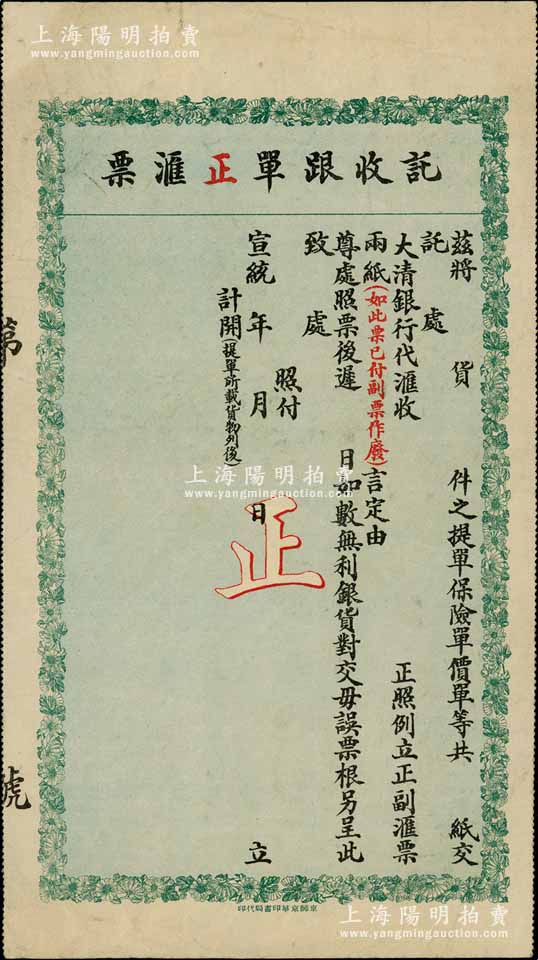 上海陽明拍賣
www.yangmingauction.com
託收跟單正滙票
茲將 貨 件之提單保險單價單等共 紙交
託 處
大清銀行代滙收 正照例立正副滙票
兩紙(如此票已付副票作廢)言定由
尊處照票後遲 日如數無利銀貨對交毋誤票根另呈此
致 處
照付
宣統 年 月 日 立
計開(提單所載貨物列後)
正
第 號
上海陽明拍賣
www.yangmingauction.com
京師京華印書局代印
上海陽明拍賣
www.yangmingauction.com